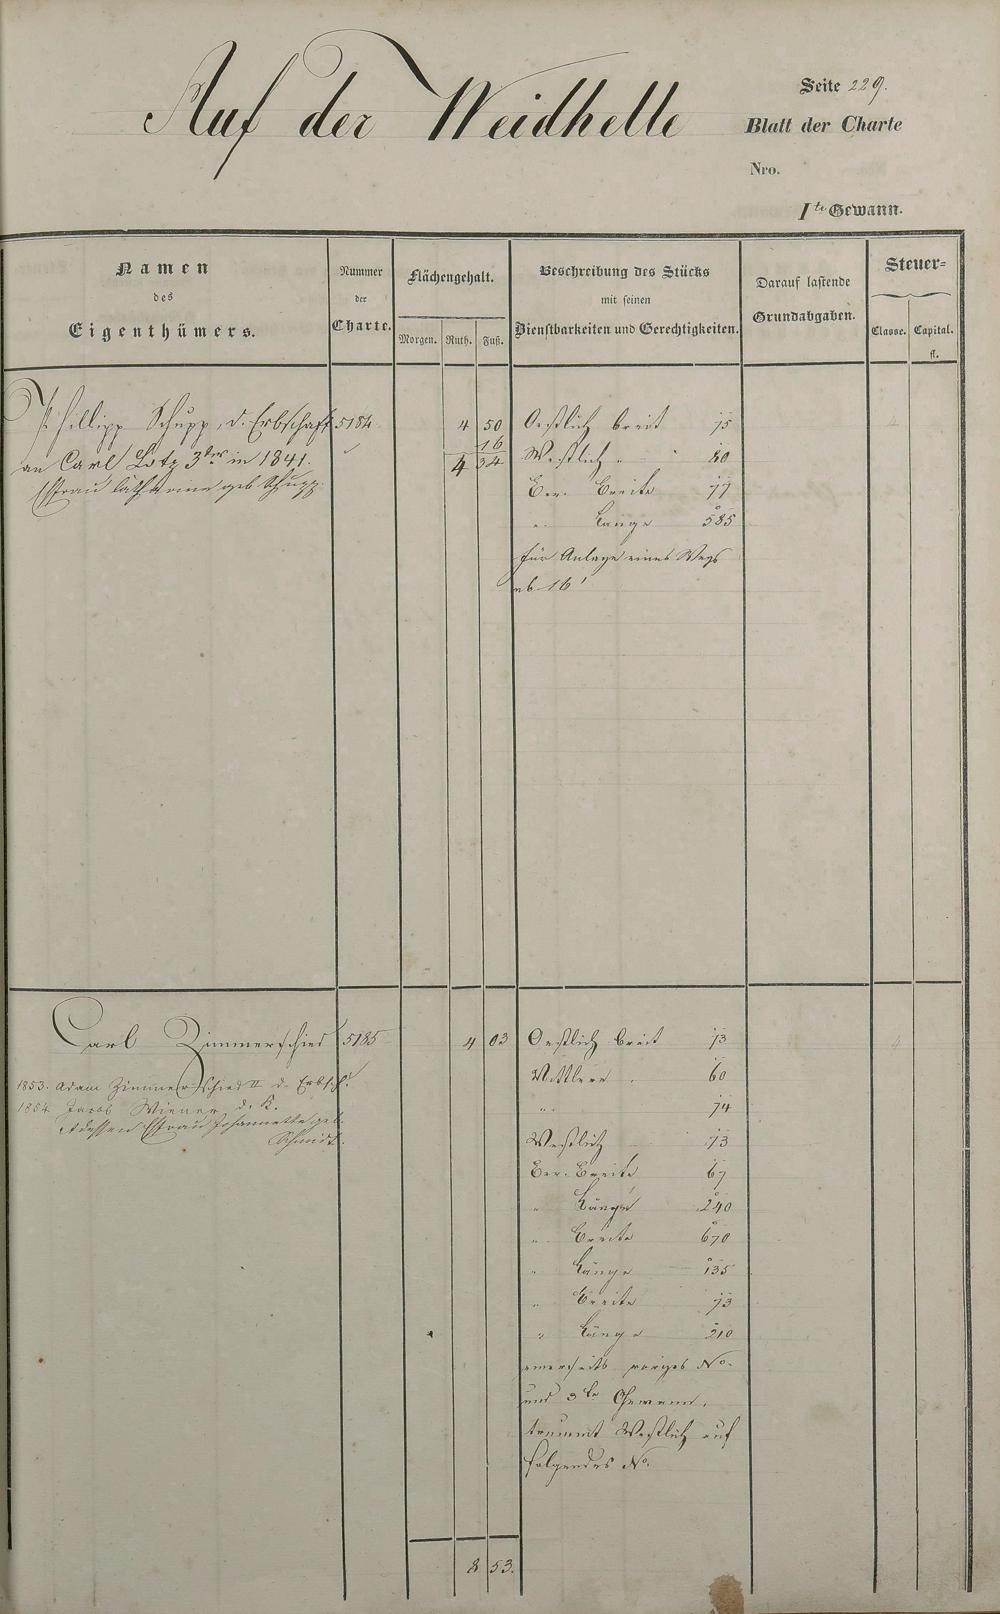 Auf der Weidhelle
Seite 229.
Blatt der Charte
Nro.
I te Gewann.
Namen
des
Eigenthümers.
Nummer
der
Charte.
Flächengehalt.
Morgen. Ruth. Fuß.
Beschreibung des Stücks
mit seinen
Dienstbarkeiten und Gerechtigkeiten.
Darauf lastende
Grundabgaben.
Steuer=
Classe. Capital.
fl.
Phillipp Schupp, d. Erbschaft 5184 4 50 Oestlich breit 75
16
an Carl Lotz 3ter in 1841. 4 34 Westlich " " 80
Ehfrau Catharine geb. Schupp.
Ber. Breite 77
" Länge 585
für Anlage eines Wegs
ab 16'
Carl Zimmerschied 5185 4 03 Oestlich breit 73
1853. Adam Zimmerschied II d. Erbsch.
Mittlere " 60
1884 Jacob Wiener d. K.
" " 74
dessen Ehfrau Johannette geb.
Schmidt.
Westlich 73
Ber. Breite 67
" Länge 240
" Breite 670
" Länge 135
" Breite 73
" Länge 210
einerseits voriges No.
und 3te Gewann,
trummt Westlich auf
folgendes No.
8 53.